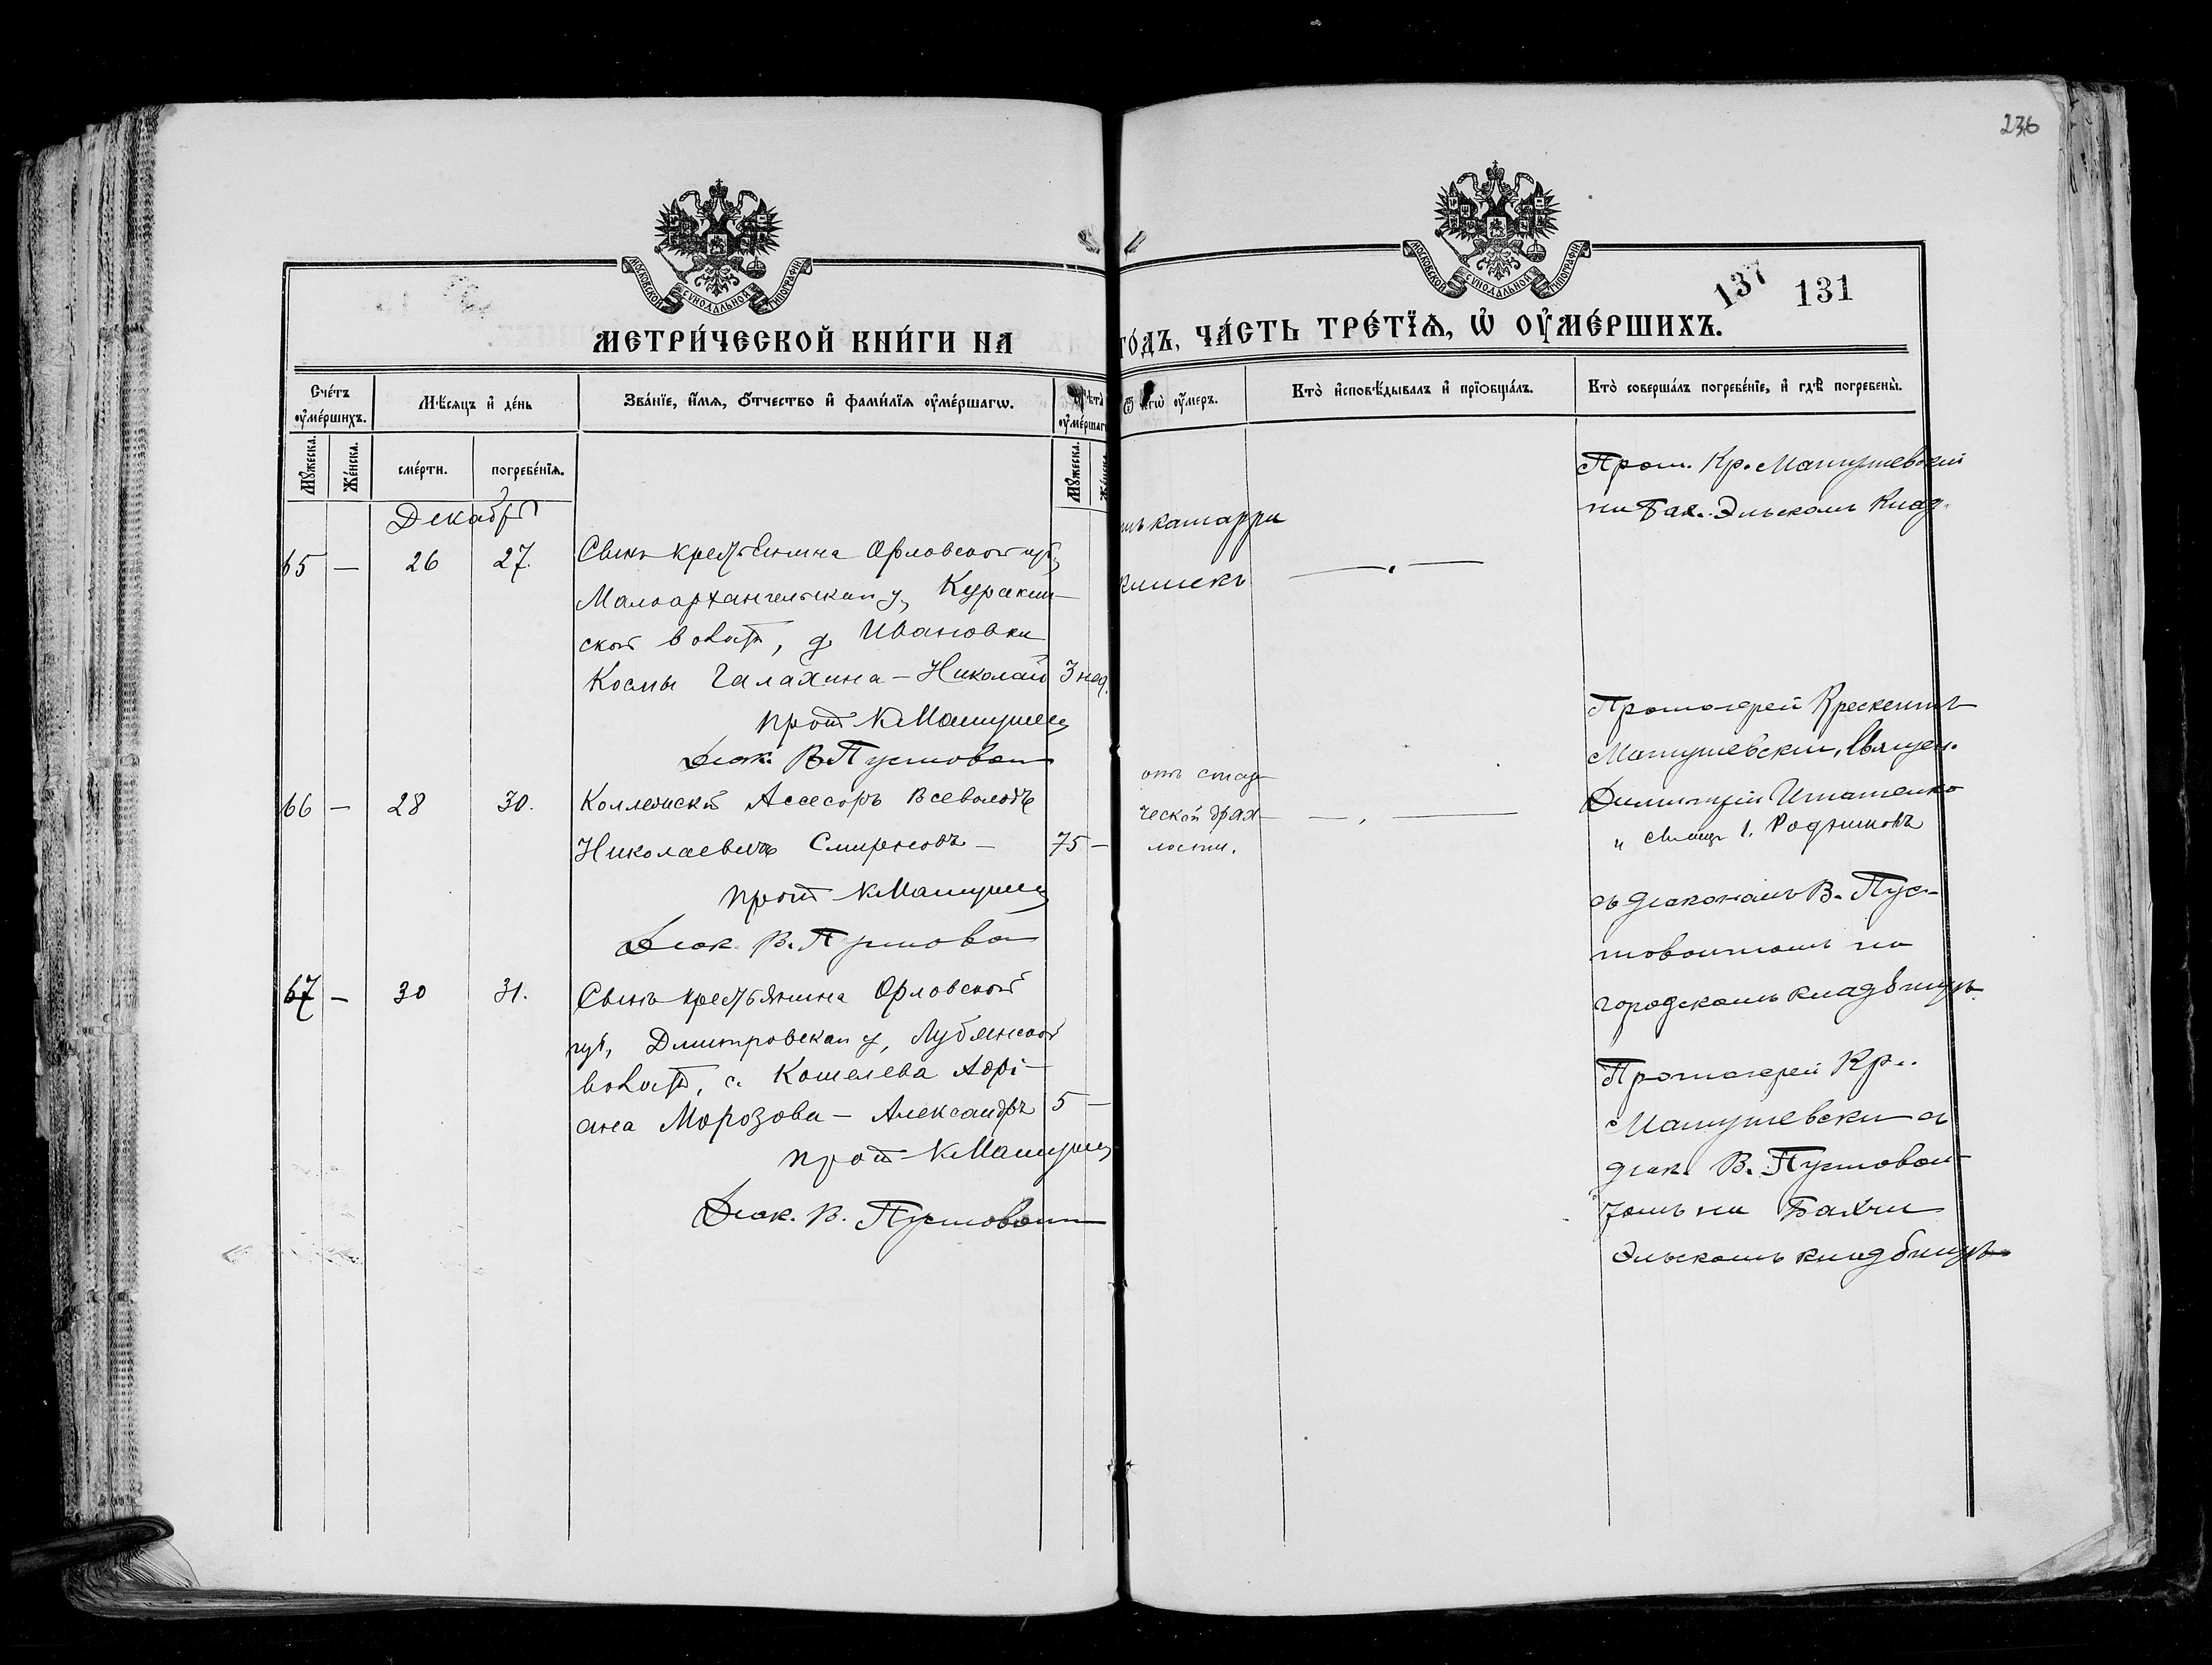 236
МОСКОВСКОЙ СѴНОДАЛЬНОЙ ТИПОГРАФІИ
МОСКОВСКОЙ СѴНОДАЛЬНОЙ ТИПОГРАФІИ
137 131
МЕТРИ́ЧЕСКОЙ КНИ́ГИ НА
ГО́ДЪ, ЧА́СТЬ ТРЕ́ТЇѦ, Ѡ҆ ОУ҆МЕ́РШИХЪ.
Сче́тъ оу҆ме́ршихъ.
Мѣ́сяцъ и҆ де́нь
Зва́нїе, и҆́мѧ, ѻ҆́тчество и҆ фами́лїѧ оу҆ме́ршагѡ.
Лѣ́та оу҆ме́ршаг
Ѿ чегѡ̀ оу҆́меръ.
Кто̀ и҆сповѣ́дывалъ и҆ прїѡбща́лъ.
Кто̀ соверша́лъ погребе́нїе, и҆ гдѣ̀ погребены̀.
Мꙋ́жеска.
Же́нска.
сме́рти.
погребе́нїѧ.
Мꙋ́жеска.
Декабрь
65 — 26 27.
Сынъ крестьянина Орловской губ,
Малоархангельскаго у, Куракин-
ской волости, д Ивановки
Космы Галахина – Николай 3 нед.
прот К Матушев
Діак. В. Пустовой
катарра
кишекъ
Прот. Кр. Матушевскій
на Бах.-Эльском Клад.
66 — 28 30.
Коллежскій Ассесоръ Всеволодъ
Николаевичъ Смирновъ – 75 –
прот К Матушев
Діак. В. Пустово
отъ стар
ческой драх-
лости.
Протоіерей Крескентъ
Матушевскій, Священ.
Димитрій Игнатенко
и Свящ. І. Родниковъ
съ діакономъ В. Пус-
товойтомъ на
городскомъ кладбищѣ.
67 — 30 31.
Сынъ крестьянина Орловской
губ, Дмитровскаго у, Лубянской
волости, с. Кошелева Адрі-
ана Морозова – Александръ 5 –
прот К Матушев
Діак. В. Пустовойт
Протоіерей Кр.
Матушевски съ
діак. В. Пустовой-
томъ на Бахчи
Эльскомъ кладбищѣ